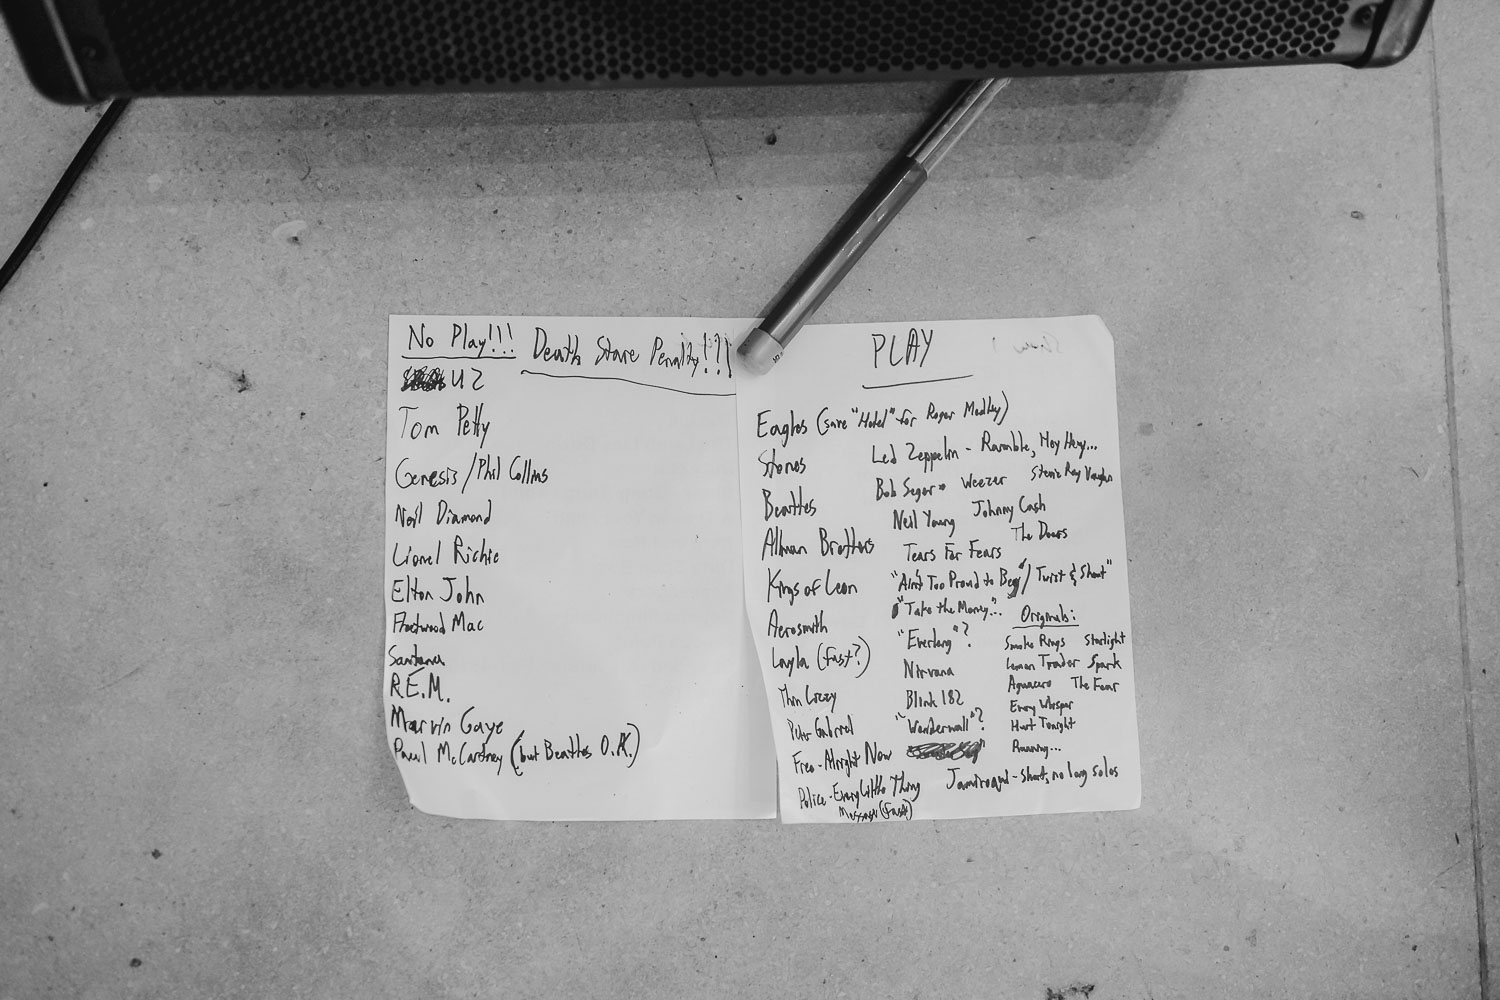 No Play!!! Death Stare Penalty!?!
U2
Tom Petty
Genesis/Phil Collins
Neil Diamond
Lionel Richie
Elton John
Fleetwood Mac
Santana
R.E.M.
Marvin Gaye
Paul McCartney (but Beatles O.K.)
PLAY
Eagles (save "Hotel" for Roger Medley)
Stones
Beatles
Allman Brothers
Kings of Leon
Aerosmith
Layla (fast?)
Thin Lizzy
Peter Gabriel
Free - Alright Now
Police - Every Little Thing
Message (fast)
Led Zeppelin - Ramble, Hey Hey...
Bob Seger Weezer Stevie Ray Vaughn
Neil Young Johnny Cash
The Doors
Tears For Fears
"Ain't Too Proud to Beg"/ Twist & Shout"
"Take the Money"..
"Everlong"?
Nirvana
Blink 182
"Wonderwall"?
Jamiroquai - short, no long solos
Originals:
Smoke Rings Starlight
Lemon Trader Spark
Aguacero The Fear
Every Whisper
Hurt Tonight
Running...